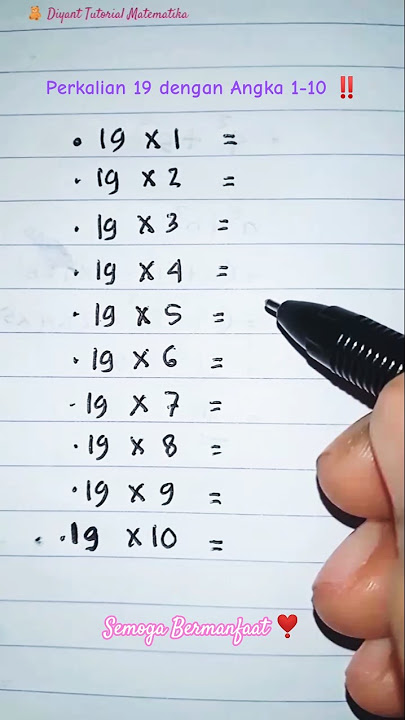 Diyant Tutorial Matematika
Perkalian 19 dengan Angka 1-10 ‼️
• 19 x 1 =
• 19 x 2 =
• 19 x 3 =
• 19 x 4 =
• 19 x 5 =
• 19 x 6 =
- 19 x 7 =
• 19 x 8 =
• 19 x 9 =
• • 19 x 10 =
Semoga Bermanfaat ❣️